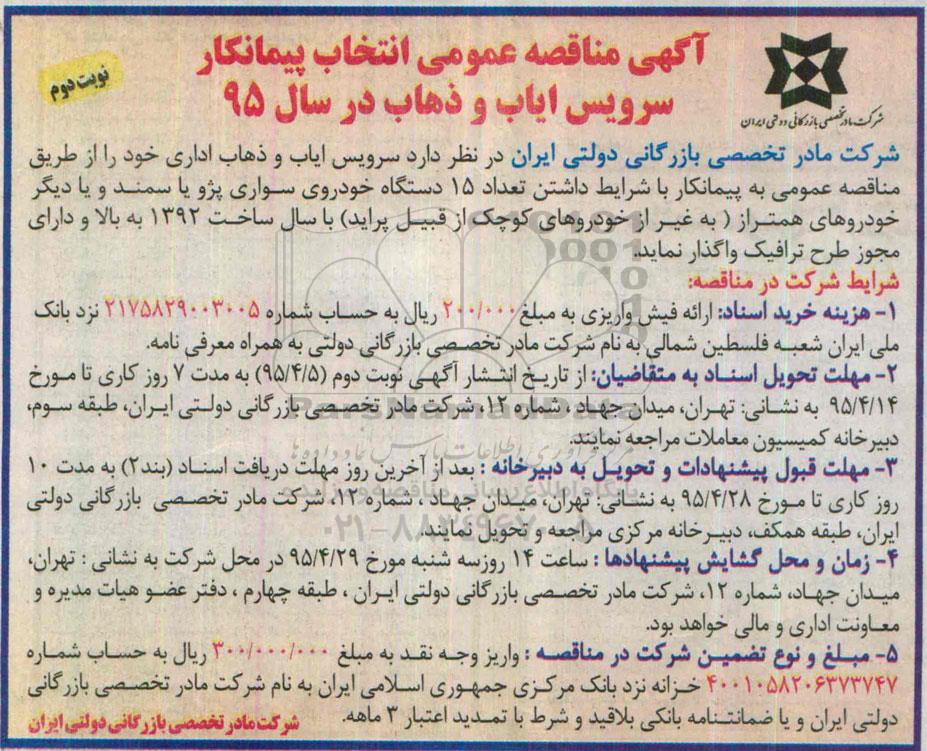 آگهی مناقصه عمومی انتخاب پیمانکار
سرویس ایاب و ذهاب در سال ۹۵
نوبت دوم
شرکت مادر تخصصی بازرگانی دولتی ایران
شرکت مادر تخصصی بازرگانی دولتی ایران در نظر دارد سرویس ایاب و ذهاب اداری خود را از طریق
مناقصه عمومی به پیمانکار با شرایط داشتن تعداد ۱۵ دستگاه خودروی سواری پژو یا سمند و یا دیگر
خودروهای همتراز ( به غیر از خودروهای کوچک از قبیل پراید) با سال ساخت ۱۳۹۲ به بالا و دارای
مجوز طرح ترافیک واگذار نماید.
شرایط شرکت در مناقصه:
۱- هزینه خرید اسناد: ارائه فیش واریزی به مبلغ ۲۰۰/۰۰۰ ریال به حساب شماره ۲۱۷۵۸۲۹۰۰۳۰۰۵ نزد بانک
ملی ایران شعبه فلسطین شمالی به نام شرکت مادر تخصصی بازرگانی دولتی به همراه معرفی نامه.
۲- مهلت تحویل اسناد به متقاضیان: از تاریخ انتشار آگهی نوبت دوم (۹۵/۴/۵) به مدت ۷ روز کاری تا مورخ
۹۵/۴/۱۴ به نشانی: تهران، میدان جهاد، شماره ۱۲، شرکت مادر تخصصی بازرگانی دولتی ایران، طبقه سوم،
دبیرخانه کمیسیون معاملات مراجعه نمایند.
۳- مهلت قبول پیشنهادات و تحویل به دبیرخانه : بعد از آخرین روز مهلت دریافت اسناد (بند۲) به مدت ۱۰
روز کاری تا مورخ ۹۵/۴/۲۸ به نشانی: تهران، میدان جهاد، شماره ۱۲، شرکت مادر تخصصی بازرگانی دولتی
ایران، طبقه همکف، دبیرخانه مرکزی مراجعه و تحویل نمایند.
۴- زمان و محل گشایش پیشنهادها : ساعت ۱۴ روزسه شنبه مورخ ۹۵/۴/۲۹ در محل شرکت به نشانی : تهران،
میدان جهاد، شماره ۱۲، شرکت مادر تخصصی بازرگانی دولتی ایران ، طبقه چهارم ، دفتر عضو هیات مدیره و
معاونت اداری و مالی خواهد بود.
۵- مبلغ و نوع تضمین شرکت در مناقصه : واریز وجه نقد به مبلغ ۳۰۰/۰۰۰/۰۰۰ ریال به حساب شماره
۴۰۰۱۰۵۸۲۰۶۳۷۳۷۴۷ خزانه نزد بانک مرکزی جمهوری اسلامی ایران به نام شرکت مادر تخصصی بازرگانی
دولتی ایران و یا ضمانتنامه بانکی بلاقید و شرط با تمدید اعتبار ۳ ماهه.
شرکت مادر تخصصی بازرگانی دولتی ایران
ParsNamadData